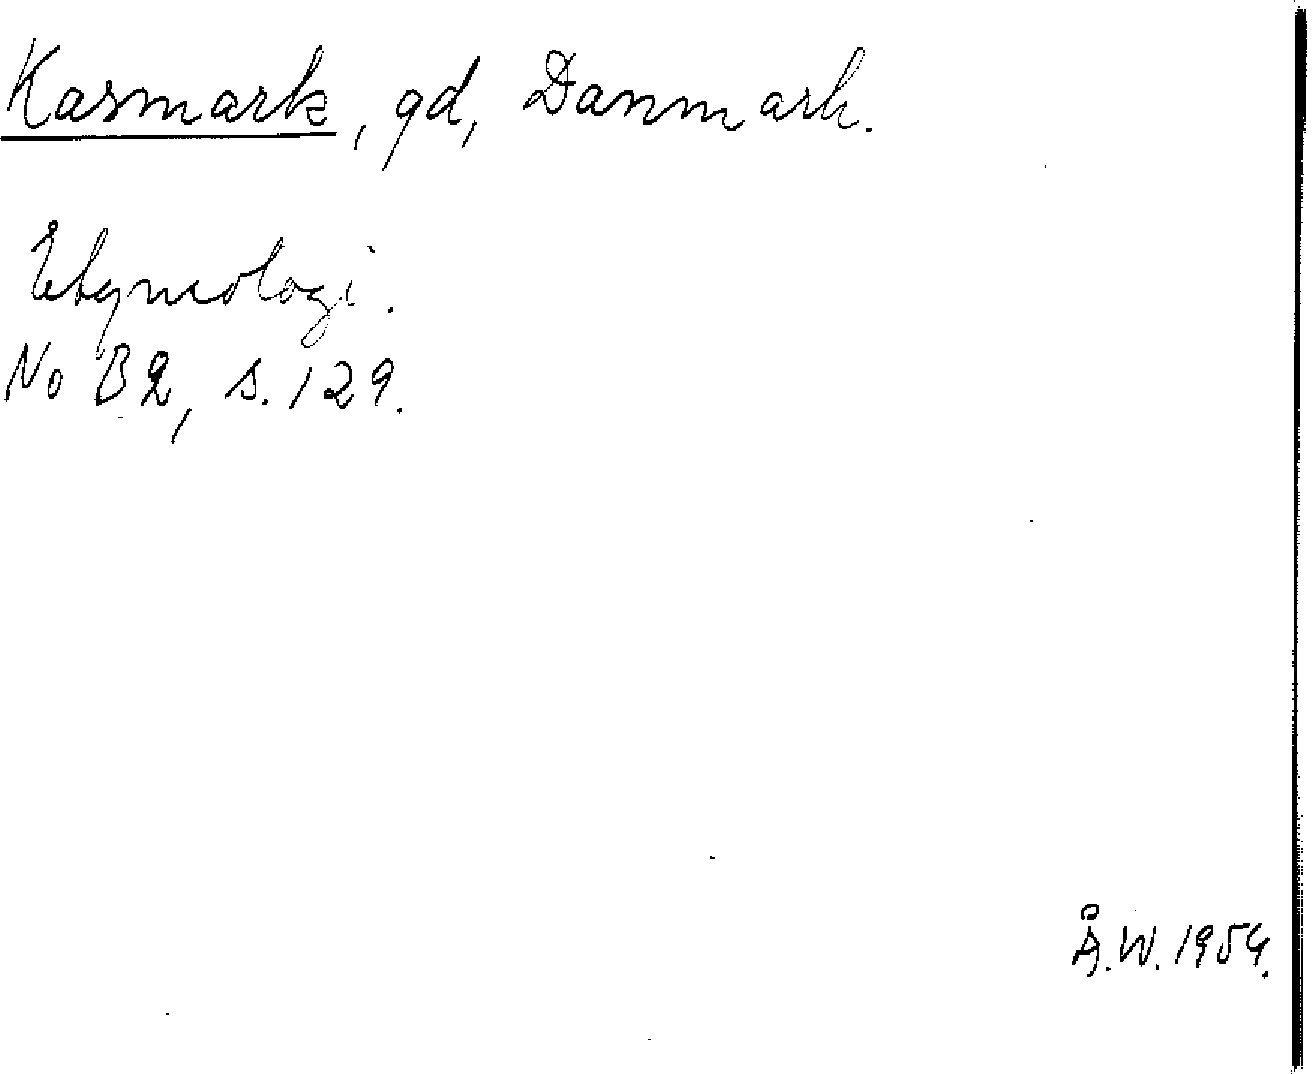 Kasmark, gd, Danmark.
Etymologi.
No B2, s. 129.
Å.W. 1954.